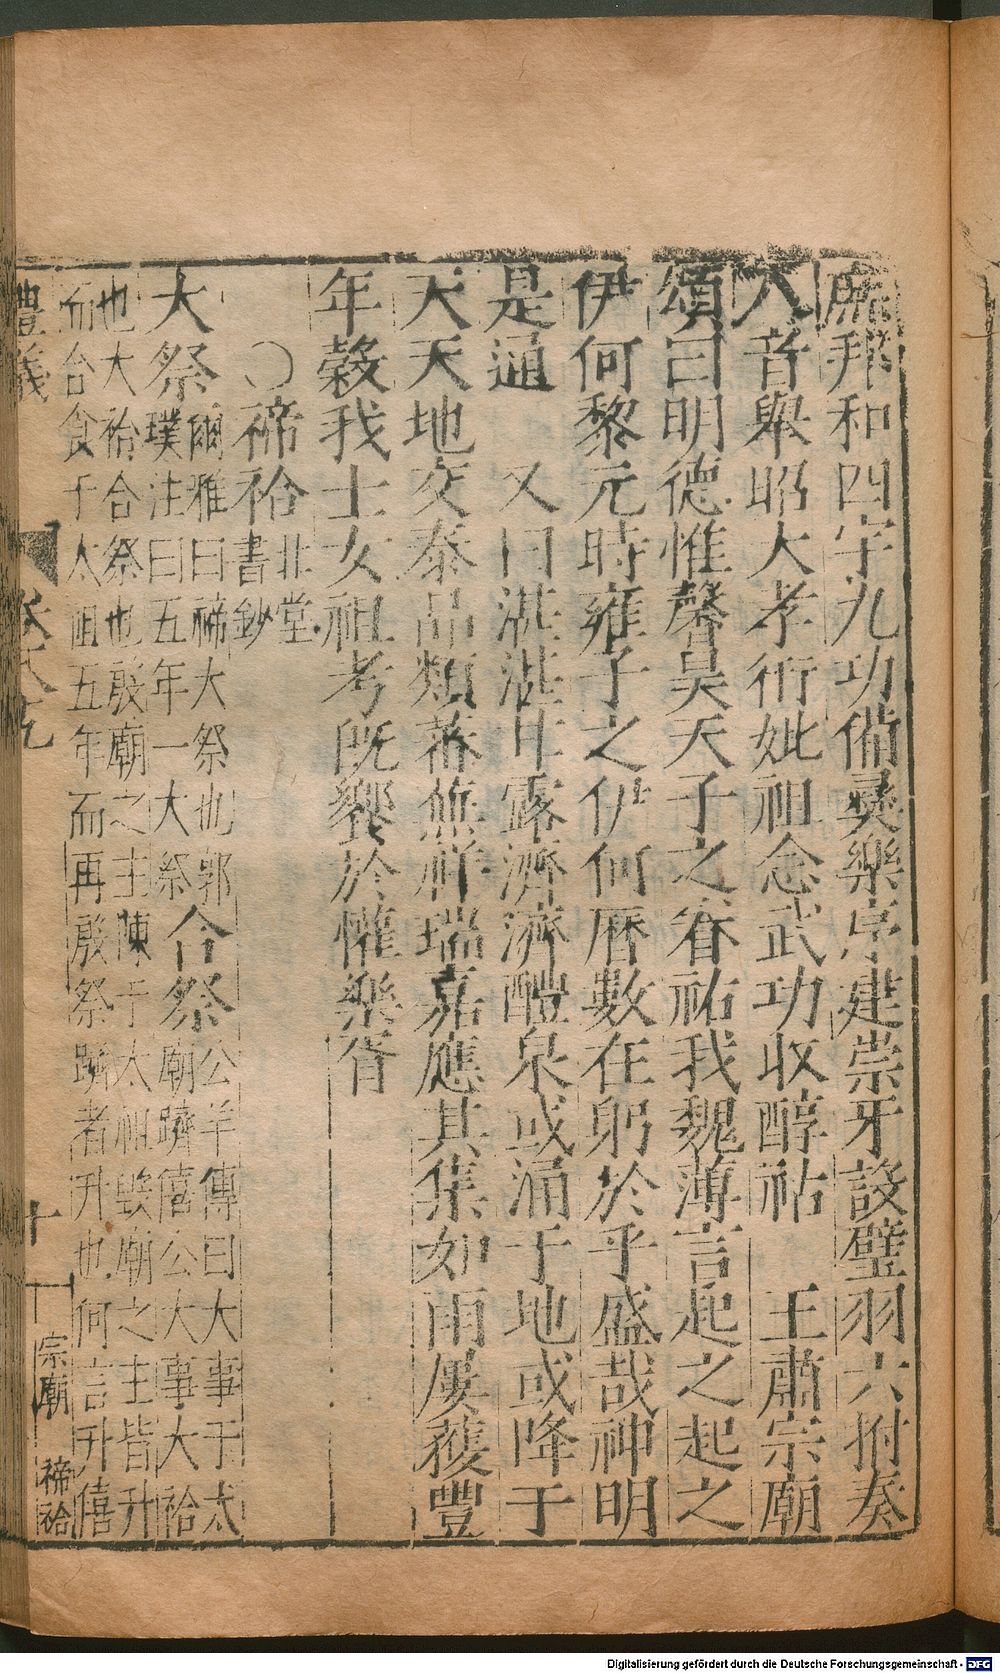 廱拜和四宇九功備彛樂序建崇牙設璧羽六拊奏
八音舉昭大孝衎妣祖念武功收醇祜　王肅宗廟
頌曰明德惟馨昊天子之眷祐我魏薄言起之起之
伊何黎元時雍子之伊何曆數在躬於乎盛哉神明
是通　又曰湛湛甘露濟濟醴泉或涌于地或降于
天天地交泰品類蕃蕪祥瑞嘉應其集如雨屢獲豐
年穀我士女祖考既饗於懽樂胥
○禘祫北堂書鈔
大祭爾雅曰禘大祭也郭璞注曰五年一大祭合祭公羊傳曰大事于太廟躋僖公大事大祫
也大祫合祭也毀廟之主陳于太祖毀廟之主皆升
而合食于太祖五年而再殷祭躋者升也何言升僖
豊儀
十
宗廟　禘祫
Digitalisierung gefördert durch die Deutsche Forschungsgemeinschaft - DFG